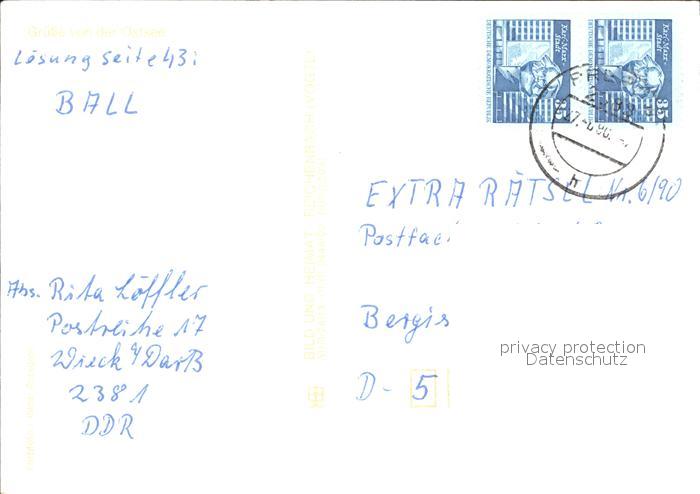 Grüße von der Ostsee
Lösung Seite 43:
BALL
Karl-Marx-Stadt
DEUTSCHE DEMOKRATISCHE REPUBLIK
35
Karl-Marx-Stadt
DEUTSCHE DEMOKRATISCHE REPUBLIK
35
EXTRA RÄTSEL Nr. 6/90
Postfac
Bergis
D- 5
privacy protection
Datenschutz
Abs. Rita Löffler
Postreihe 17
Wieck a/ Darß
2381
DDR
BILD UND HEIMAT REICHENBACH (VOGTL)